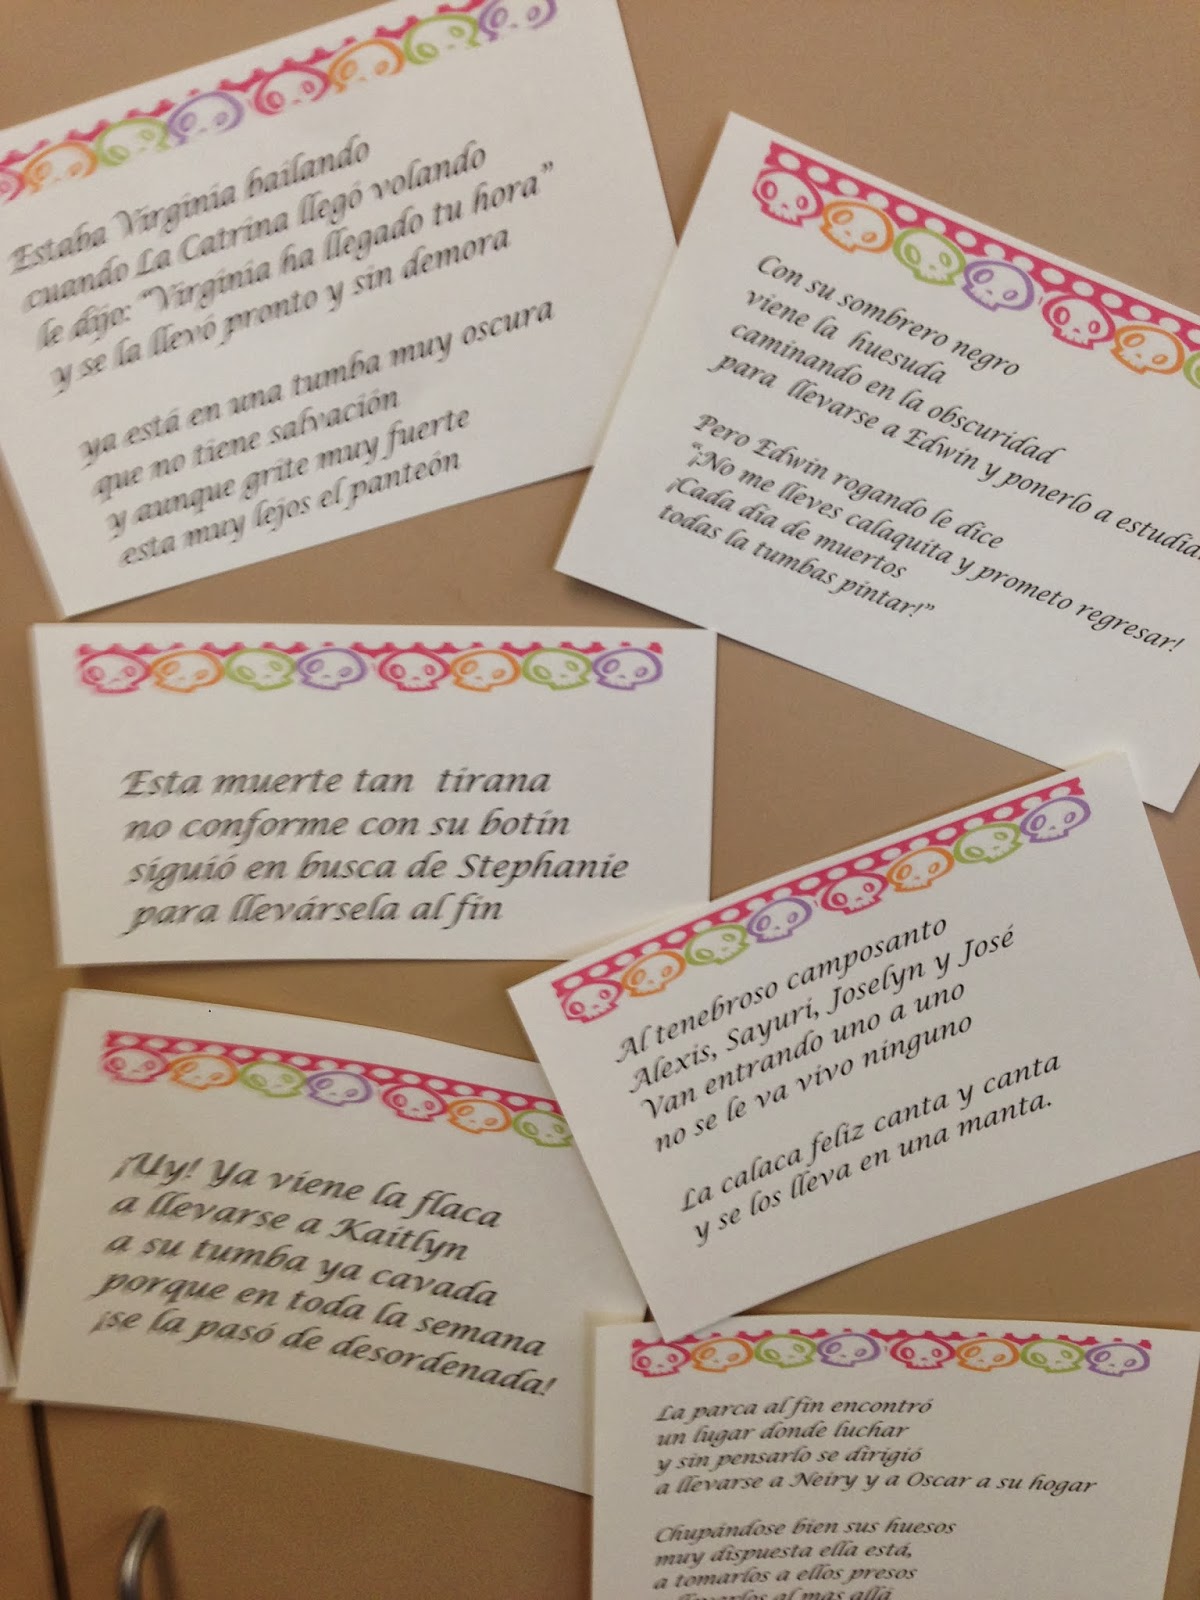 Estaba Virginia bailando
cuando La Catrina llegó volando
le dijo: "Virginia ha llegado tu hora"
y se la llevó pronto y sin demora
ya está en una tumba muy oscura
que no tiene salvación
y aunque grite muy fuerte
esta muy lejos el panteón
Con su sombrero negro
viene la huesuda
caminando en la obscuridad
para llevarse a Edwin y ponerlo a estudiar
Pero Edwin rogando le dice
"¡No me lleves calaquita y prometo regresar!
¡Cada dia de muertos
todas la tumbas pintar!"
Esta muerte tan tirana
no conforme con su botín
siguió en busca de Stephanie
para llevársela al fin
Al tenebroso camposanto
Alexis, Sayuri, Joselyn y José
Van entrando uno a uno
no se le va vivo ninguno
La calaca feliz canta y canta
y se los lleva en una manta.
¡Uy! Ya viene la flaca
a llevarse a Kaitlyn
a su tumba ya cavada
porque en toda la semana
¡se la pasó de desordenada!
La parca al fin encontró
un lugar donde luchar
y sin pensarlo se dirigió
a llevarse a Neiry y a Oscar a su hogar
Chupándose bien sus huesos
muy dispuesta ella está,
a tomarlos a ellos presos
al mas allá